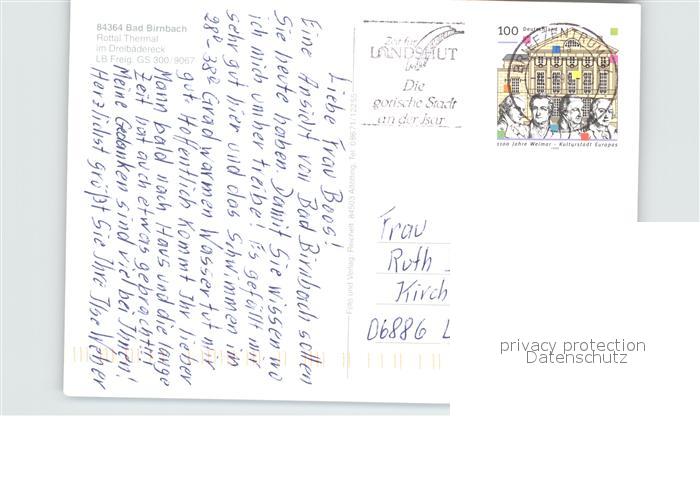 84364 Bad Birnbach
Rottal Thermal
im Dreibädereck
LB Freig. GS 300/9067
Liebe Frau Boos!
Eine Ansicht von Bad Birnbach sollen
Sie heute haben. Damit Sie wissen wo
ich mich umher treibe! Es gefällt mir
sehr gut hier und das Schwimmen im
28º-38º Grad warmen Wasser tut mir
gut. Hoffentlich kommt Ihr lieber
Mann bald nach Haus und die lange
Zeit hat auch etwas gebracht!
Meine Gedanken sind viel bei Ihnen,
Herzlichst grüßt Sie Ihre Ilse Weber
Foto und Verlag: Reichelt, 84503 Altötting, Tel. 08671/12255
Zeit für
LANDSHUT
Die
gotische Stadt
an der Isar
BRIEFZENTRUM
100 Deutschland
1100 Jahre Weimar - Kulturstadt Europas
1999
Frau
Ruth
Kirch
06886 L
privacy protection
Datenschutz